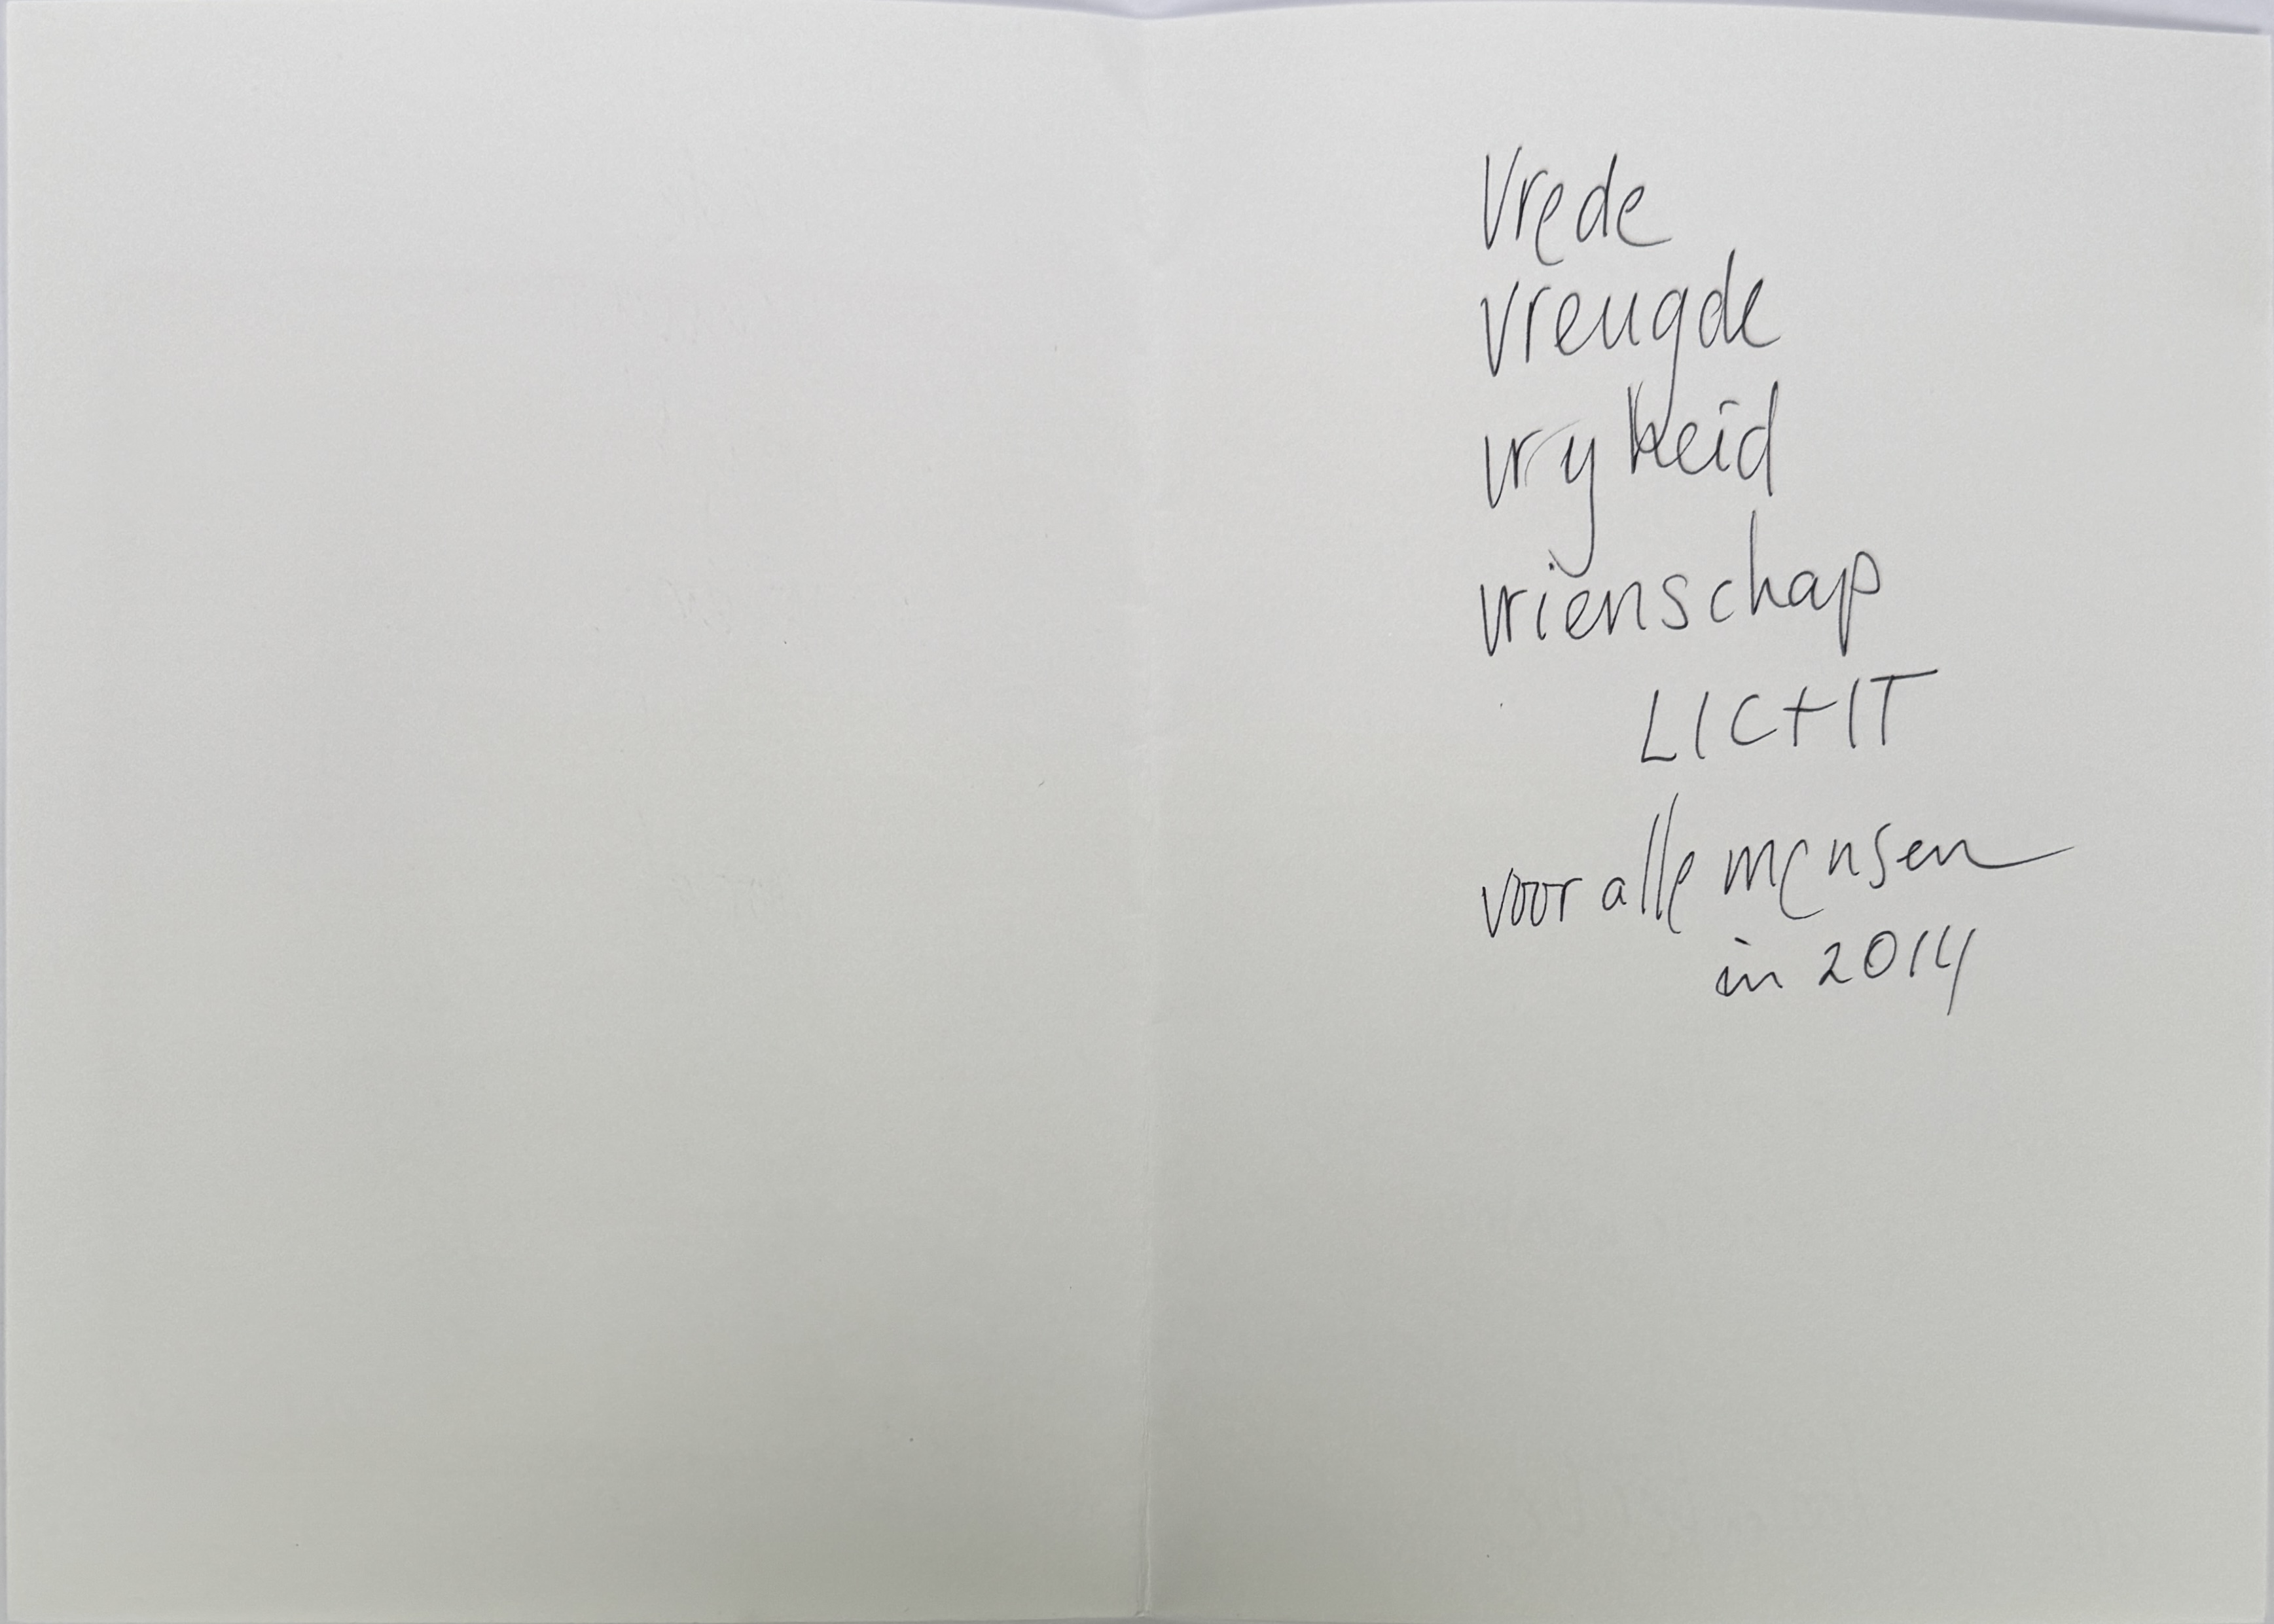 Vrede
vreugde
vrijheid
vrienschap
LICHT
voor alle mensen
in 2014